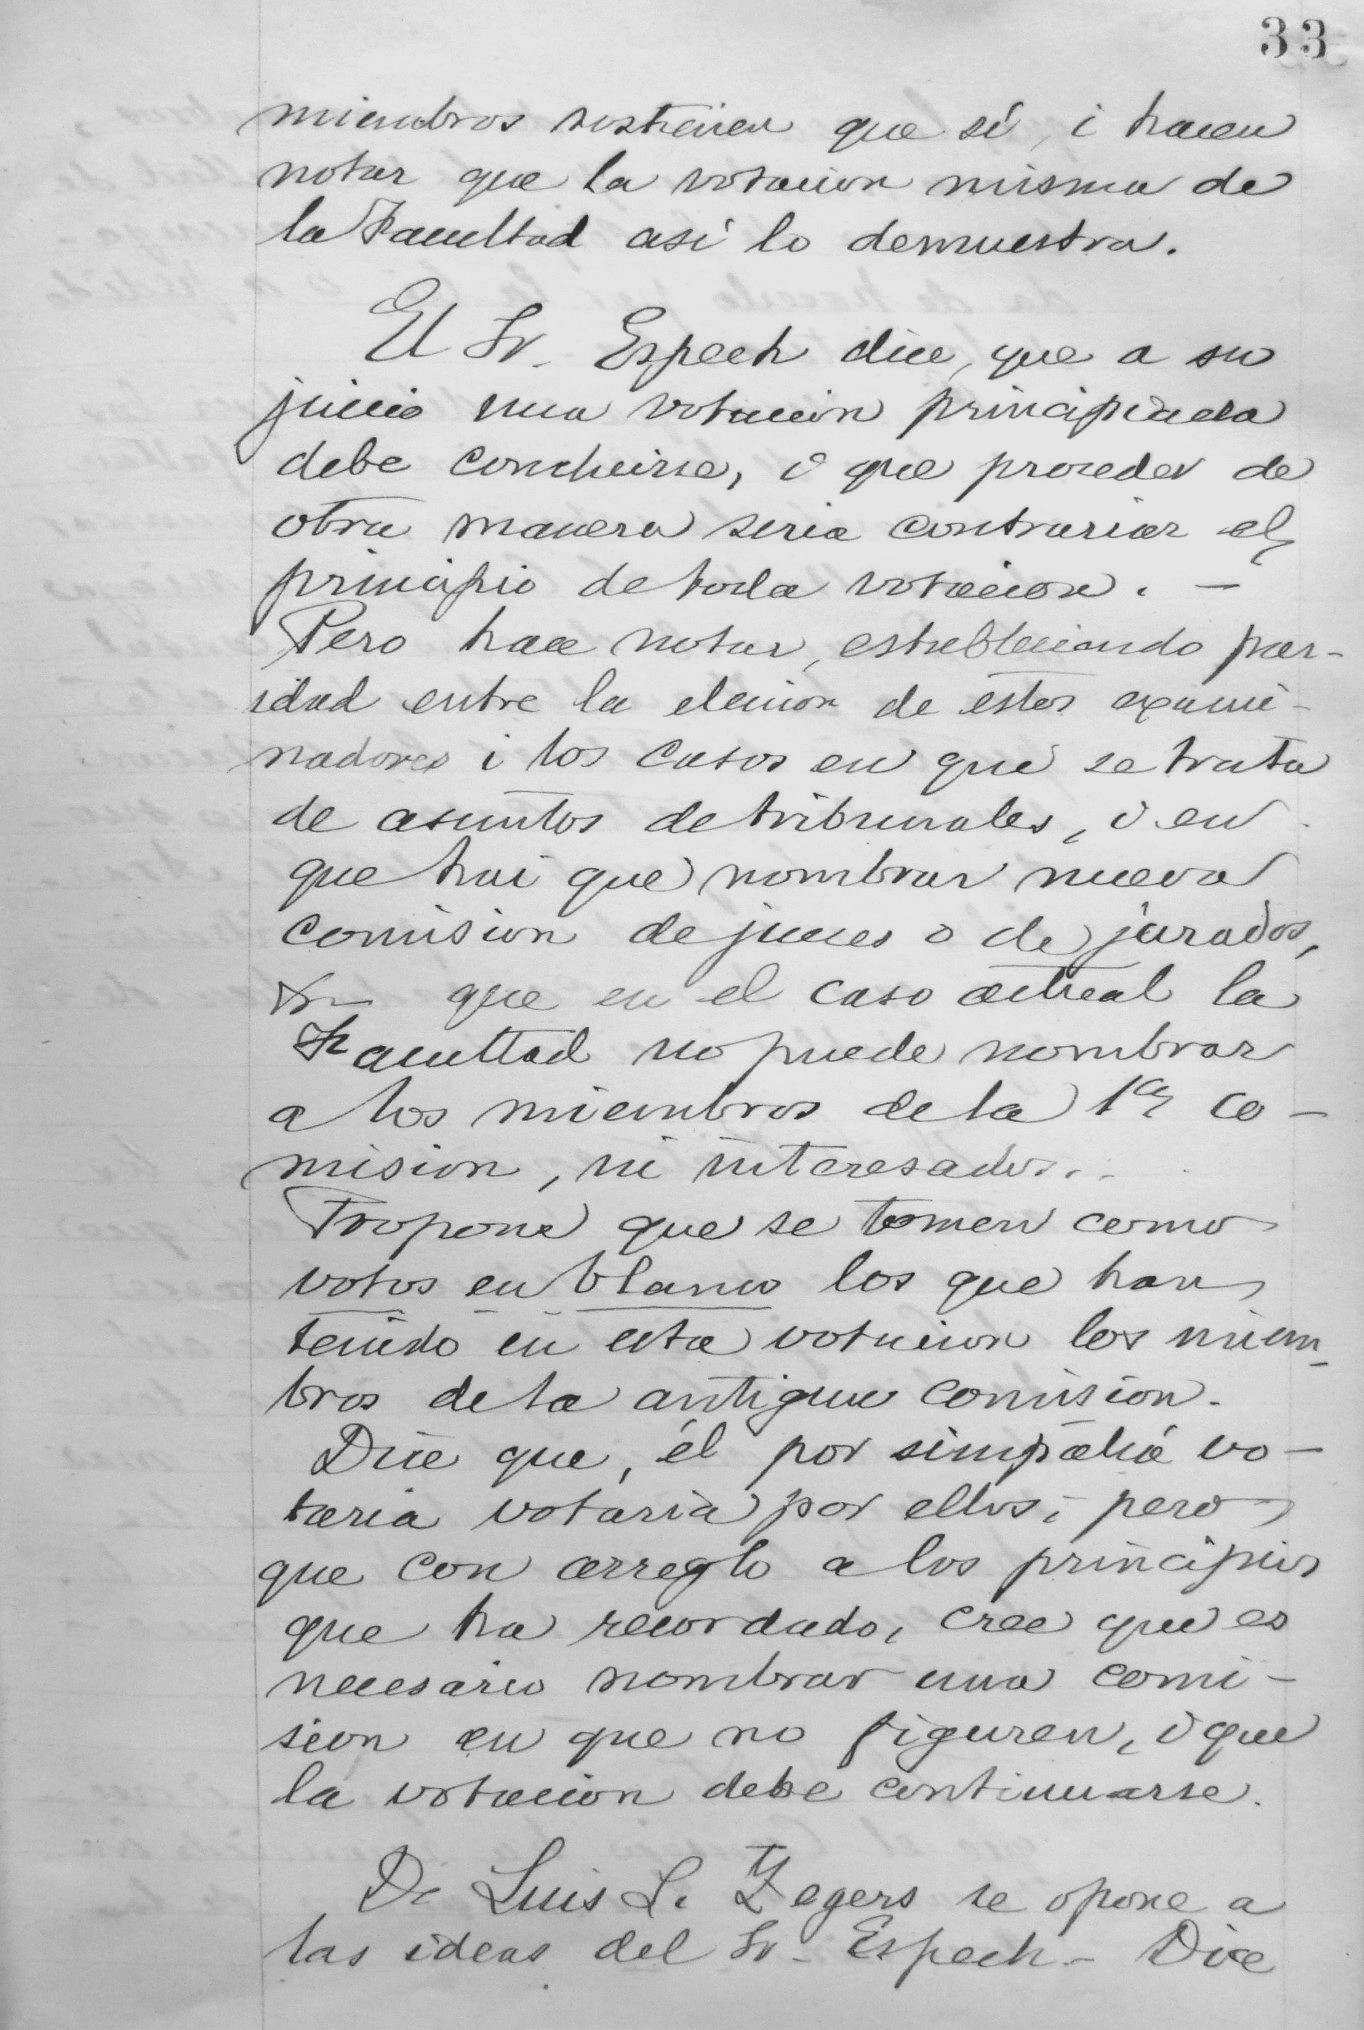 33
miembros sostienen que sí, i hacen
notar que la votacion misma de
la Facultad asi lo demuestra.
El Sr. Espech dice, que a su
juicio una votacion principiada
debe concluirse, i que proceder de
otra manera seria contrariar el
principio de toda votacion. —
Pero hace notar, estableciendo par-
idad entre la eleccion de estos exami-
nadores i los casos en que se trata
de asuntos de tribunales, i en
que hai que nombrar nueva
comision de jueces o de jurados,
que en el caso actual la
Facultad no puede nombrar
a los miembros de la 1a co-
mision, ni interesados.
Propone que se tomen como
votos en blanco los que han
tenido en esta votacion los miem-
bros de la antigua comision.
Dice que, él por simpatía vo-
taria votaria por ellos; pero
que con arreglo a los principios
que ha recordado, cree que es
necesario nombrar una comi-
sion en que no figuren, i que
la votacion debe continuarse.
Dn Luis L. Zegers se opone a
las ideas del Sr. Espech. — Dice